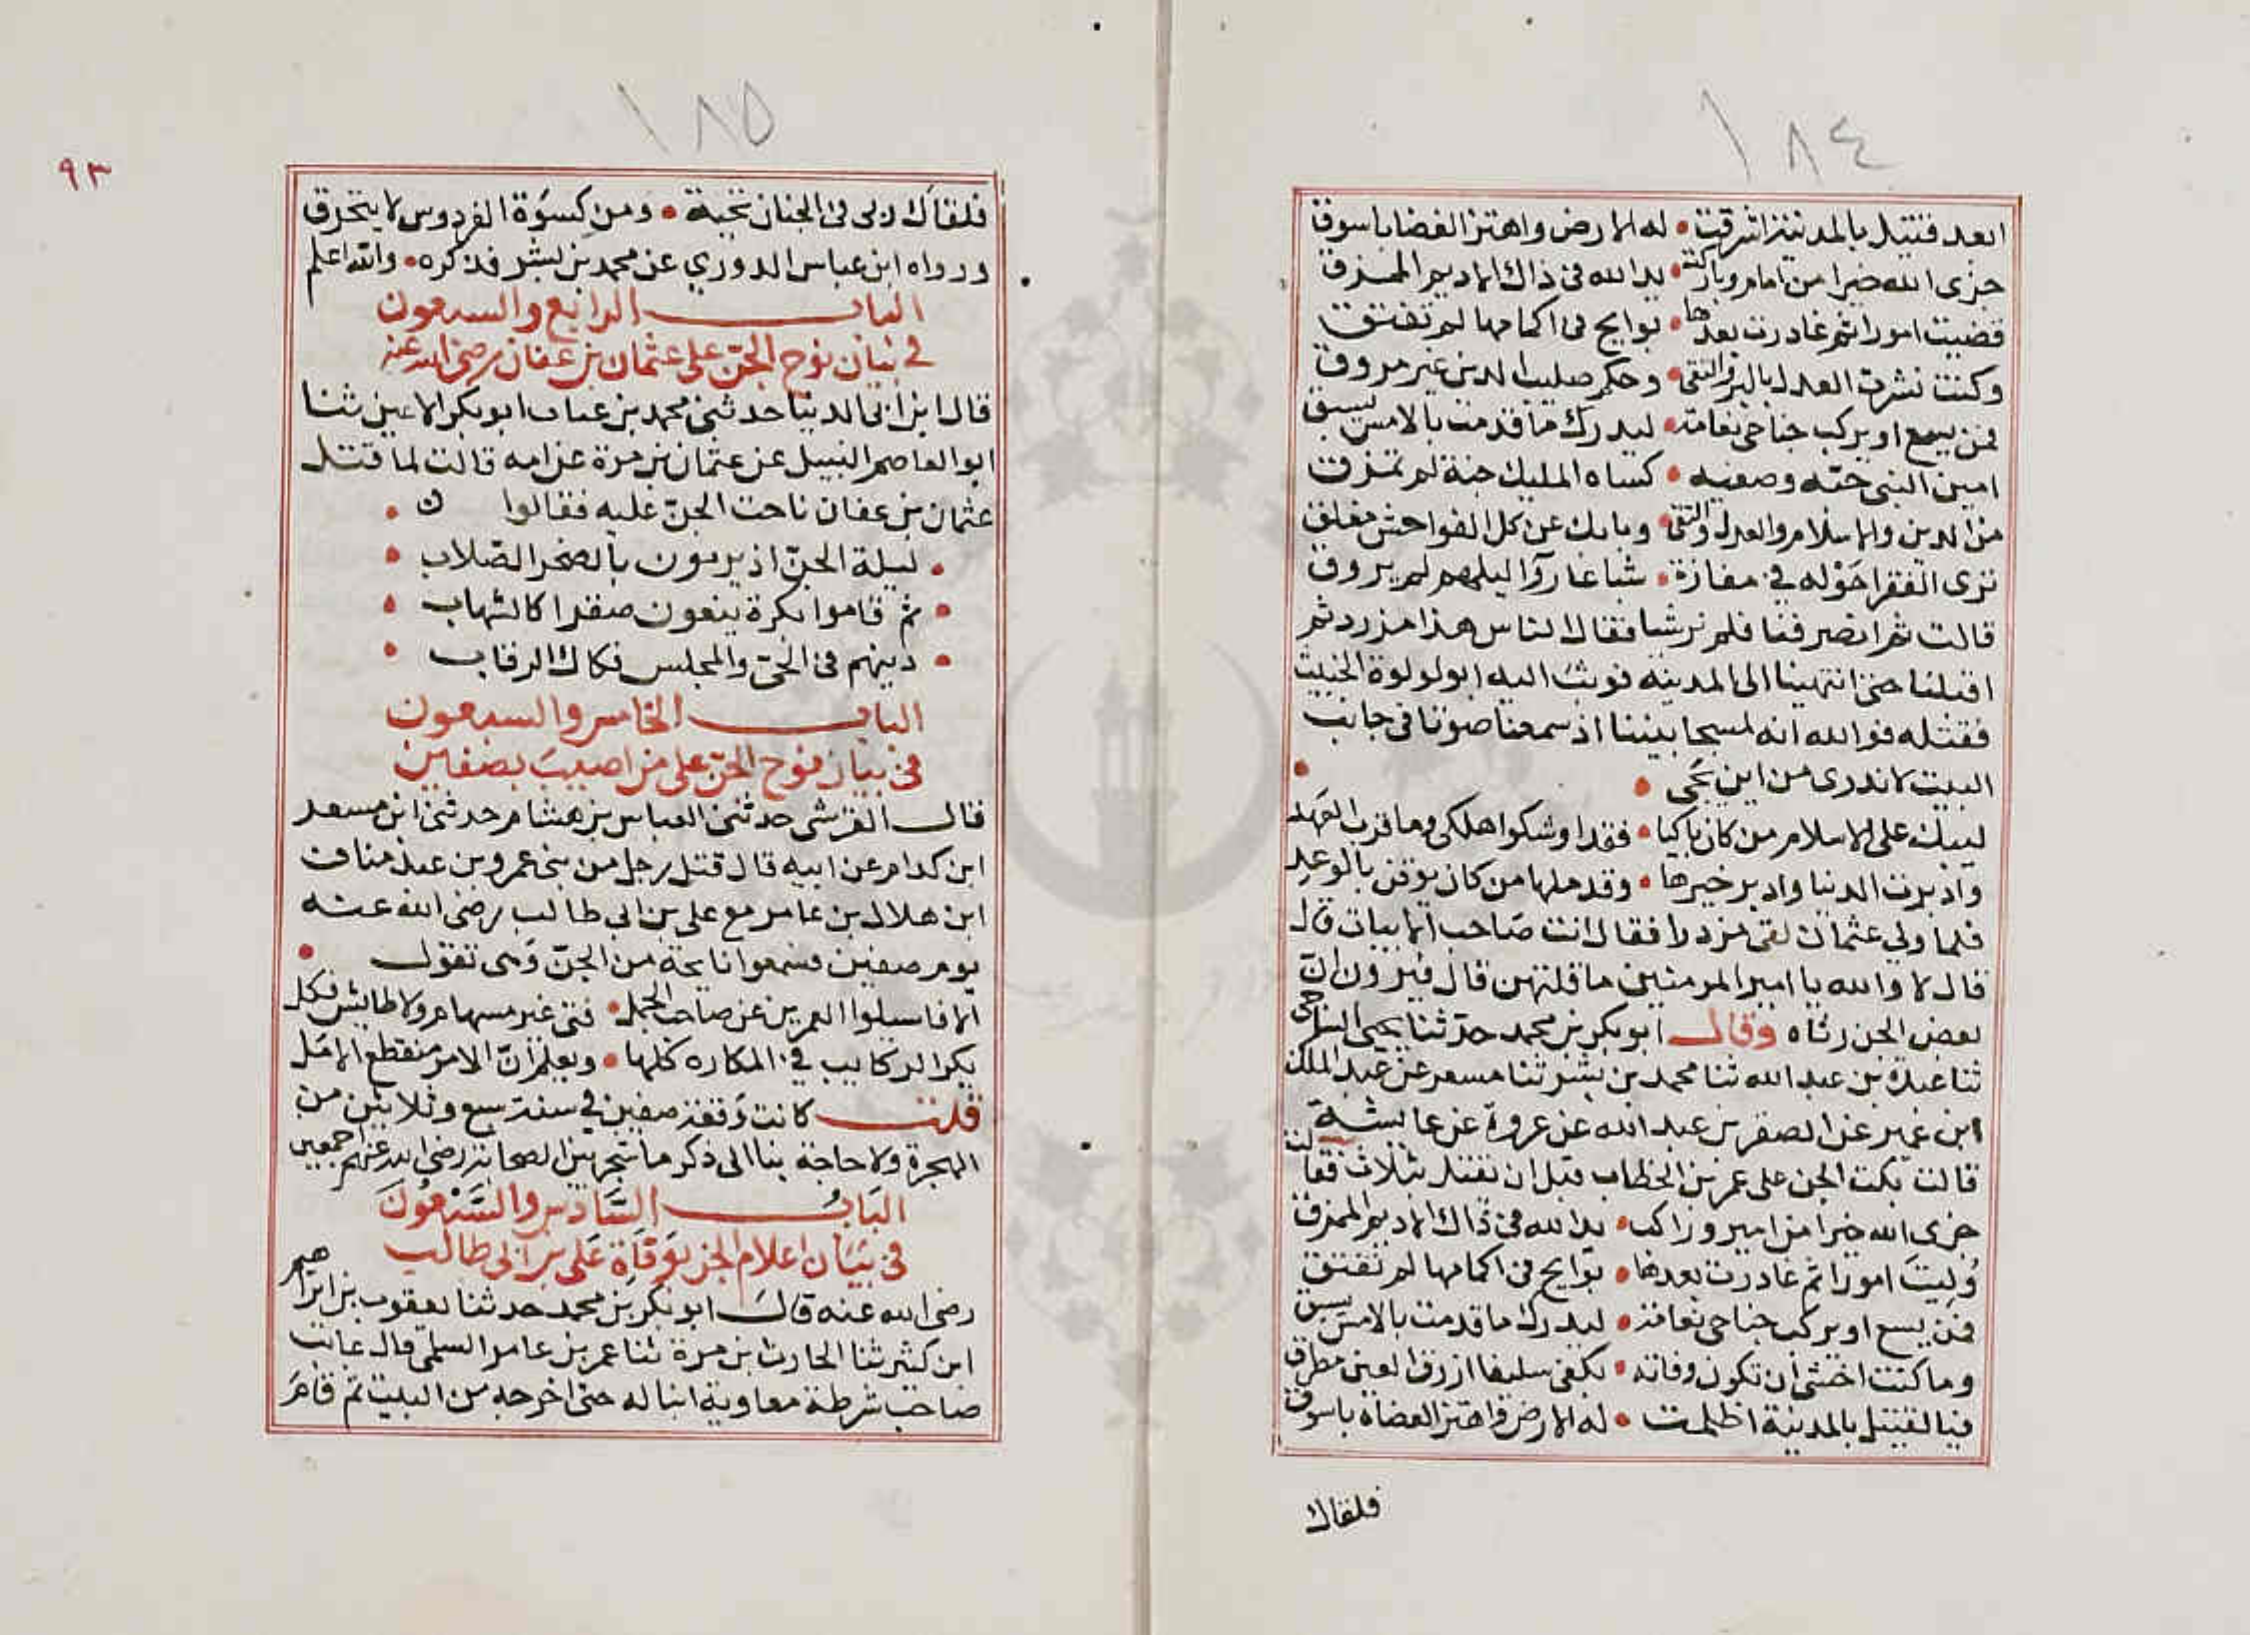 ١٨٤
ابعد قتيل بالمدينة اشرقت • له الارض واهتز الغضا باسوق
جزى الله خيرا من امام وباركت • يد الله فى ذاك الاديم الممزق
قضيت امورا ثم غادرت بعدها • بوايج فى اكمامها لم تفتق
وكنت نشرت العدل بالبر والتقى • وحكم صليب الدين غير مروق
فمن يسع او يركب جناحى نعامة • ليدرك ما قدمت بالامس يسبق
امين النبى حبه وصفيه • كساه المليك جبة لم تمزق
من الدين والاسلام والعدل والتقى • وبابك عن كل الفواحش مغلق
ترى الفقرا حوله في مفازة • شباعا رواا ليلهم لم يروق
قالت ثم انصرفنا فلم نر شيا فقال الناس هذا مزرد ثم
اقبلنا حتى انتهينا الى المدينة فوثب اليه ابو لولوة الخبيث
فقتله فوالله انه لمسجا بيننا اذ سمعنا صوتا فى جانب
البيت لا ندرى من اين يجى •
ليبك على الاسلام من كان باكيا • فقد اوشكوا هلكى وما قرب العهد
وادبرت الدنيا وادبر خيرها • وقد ملها من كان يوقن بالوعد
فلما ولي عثمان لقى مزردا فقال انت صاحب الابيات قال
قال لا والله يا امير المومنين ما قلتهن قال فيرون ان
بعض الجن رثاه وقال ابو بكر بن محمد حدثنا يحيى
ثنا عبدة بن عبد الله ثنا محمد بن بشر ثنا مسعر عن عبد الملك
ابن عمير عن الصقر بن عبد الله عن عروة عن عايشة
قالت بكت الجن على عمر بن الخطاب قبل ان تقتل بثلاث فقالت
جزى الله خيرا من امير وراكب • يد الله فى ذاك الاديم الممزق
وليت امورا ثم غادرت بعدها • بوايج فى اكمامها لم تفتق
فمن يسع او يركب جناحى نعامة • ليدرك ما قدمت بالامس يسبق
وما كنت اخشى ان تكون وفاته • بكفى سليفا ازرق العين مطرق
فيا لقتيل بالمدينة اظلمت • له الارض واهتز العضاة باسوق
فلقاك
١٨٥
٩٣
فلقاك ربى فى الجنان تحية • ومن كسوة الفردوس لا يتخرق
ورواه ابن عباس الدوري عن محمد بن بشر فذكره • والله اعلم
الباب الرابع والسبعون
في بيان نوح الجن على عثمان بن عفان رضى الله عنه
قال ابن ابى الدنيا حدثنى محمد بن عباب ابو بكر الاعين ثنا
ابو العاصم النبيل عن عثمان بن مرة عن امه قالت لما قتل
عثمان بن عفان ناحت الجن عليه فقالوا •
• ليلة الجن اذ يرمون بالصخر الصلاب •
• ثم قاموا بكرة ينعون صقرا كالشهاب •
• زينهم فى الحى والمجلس فكاك الرقاب •
الباب الخامس والسبعون
فى بيان نوح الجن على من اصيب بصفين
قال القرشى حدثنى العباس بن هشام حدثنى ابن مسعر
ابن كدام عن ابيه قال قتل رجل من بنى عمرو بن عبد مناف
ابن هلال بن عامر مع على بن ابى طالب رضى الله عنه
يوم صفين فسمعوا نايحة من الجن وهى تقول •
الا فاسيلوا العمرين عن صاحب الجمل • فتى غير مسهام ولا طايش نكل
يكر الركايب في المكاره كلها • ويعلم ان الامر منقطع الامل
قلت كانت وقعة صفين في سنة سبع وثلاثين من
الهجرة ولا حاجة بنا الى ذكر ما شجر بين الصحابة رضى الله عنهم اجمعين
الباب السادس والسبعون
فى بيان اعلام الجن بوفاة على بن ابى طالب
رضى الله عنه قال ابو بكر بن محمد حدثنا يعقوب بن ابراهيم
ابن كثير ثنا الحارث بن مرة ثنا عمر بن عامر السلمى قال عاتب
صاحب شرطة معاوية ابنا له حتى اخرجه من البيت ثم قام